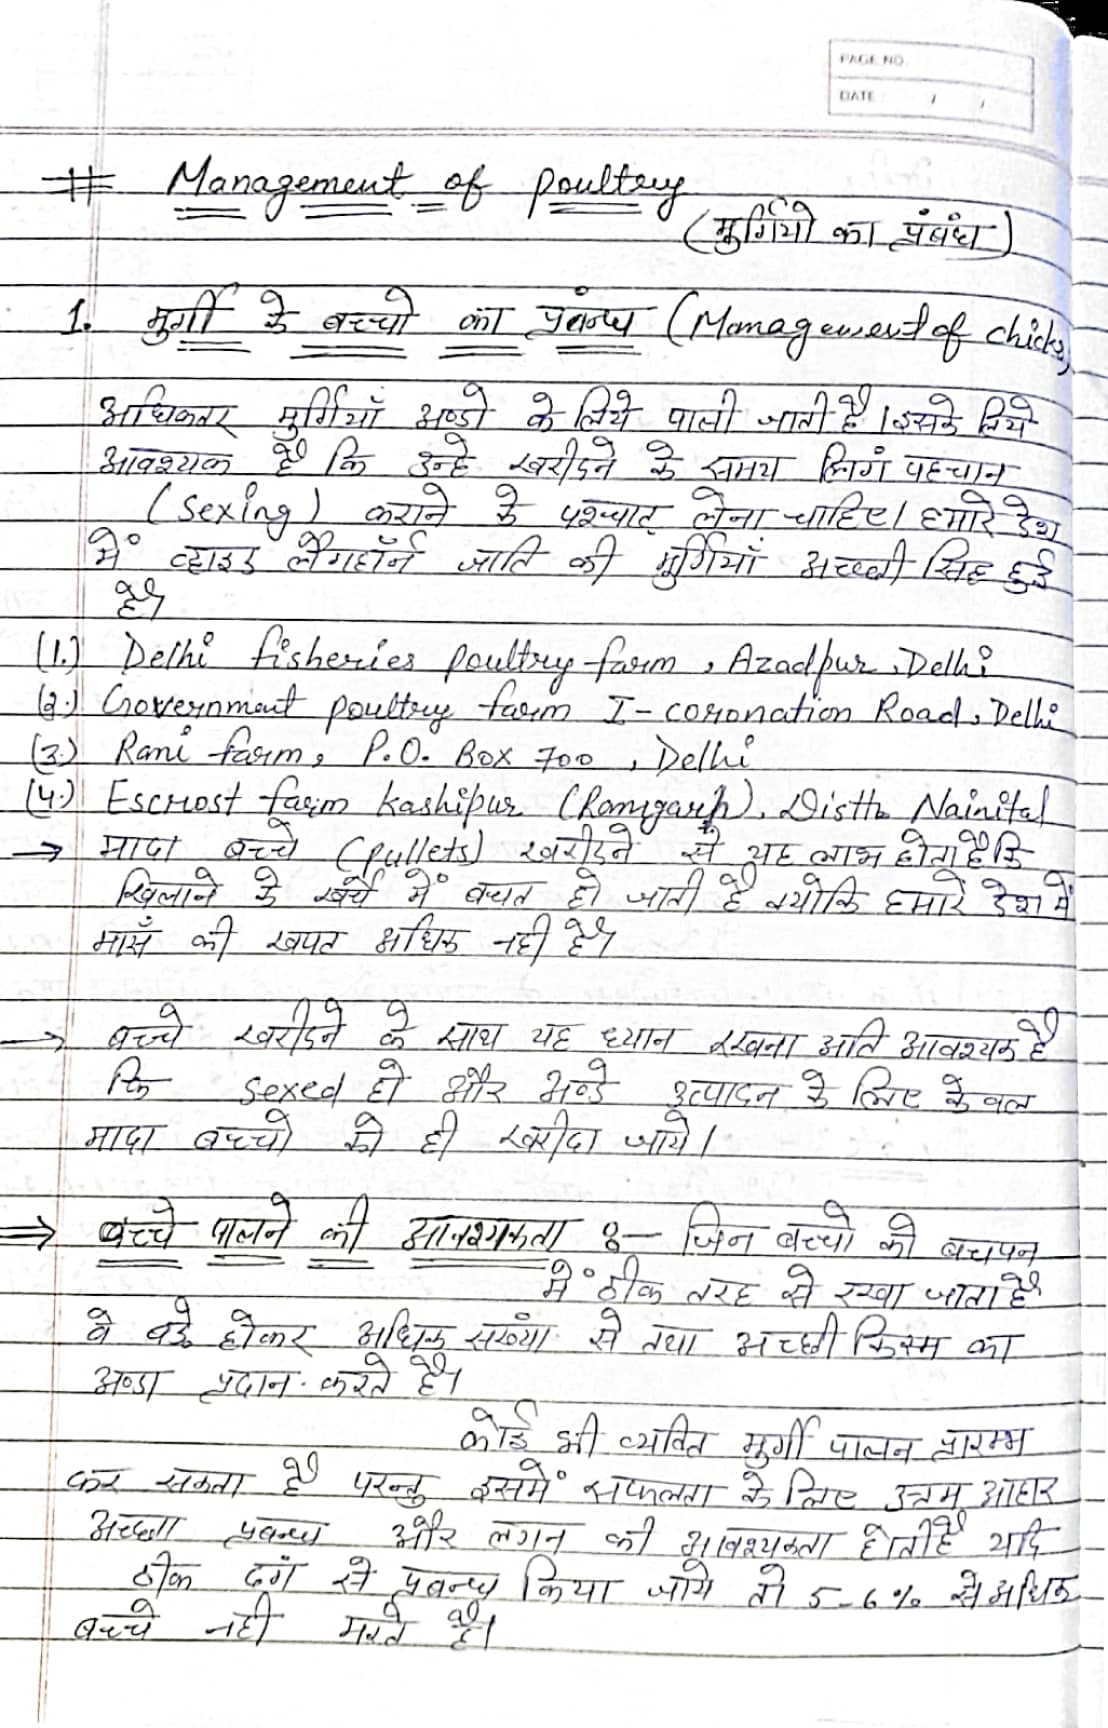 PAGE NO.
DATE: / /
# Management of poultry
(मुर्गियो का प्रंबंध)
1. मुर्गी के बच्चो का प्रंबन्ध (Management of chicks)
अधिकतर मुर्गियाँ अण्डो के लिये पाली जाती है। इसके लिये
आवश्यक है कि उन्हे खरीदने के समय लिगं पहचान
(Sexing) कराने के पश्चात् लेना चाहिए। हमारे देश
में व्हाइड लैगहॉर्न जाति की मुर्गियाँ अच्छी सिद्ध हुई
है।
(1.) Delhi fisheries poultry farm, Azadpur, Delhi
(2.) Government poultry farm I-coronation Road, Delhi
(3.) Rani farm, P.O. Box 700, Delhi
(4.) Escrost farm Kashipur (Ramgarh), Distt. Nainital
→ मादा बच्चे (pullets) खरीदने से यह लाभ होता है कि
खिलाने के खर्चे में बचत हो जाती है क्योकि हमारे देश में
मासँ की खपत अधिक नही है।
→ बच्चे खरीदने के साथ यह ध्यान रखना अति आवश्यक है
कि sexed हो और अण्डे उत्पादन के लिए केवल
मादा बच्चो को ही खरीदा जाये।
⇒ बच्चे पालने की आवश्यकता :- जिन बच्चो को बचपन
में ठीक तरह से रखा जाता है
वे बडे होकर अधिक सख्यां से तथा अच्छी किस्म का
अण्डा प्रदान करते है।
कोई भी व्यक्ति मुर्गी पालन प्रारम्भ
कर सकता है परन्तु इसमें सफलता के लिए उत्तम आहार
अच्छा प्रबन्ध और लगन की आवश्यकता होती है यदि
ठीक ढगं से प्रबन्ध किया जाये तो 5-6% से अधिक
बच्चे नही मरते है।